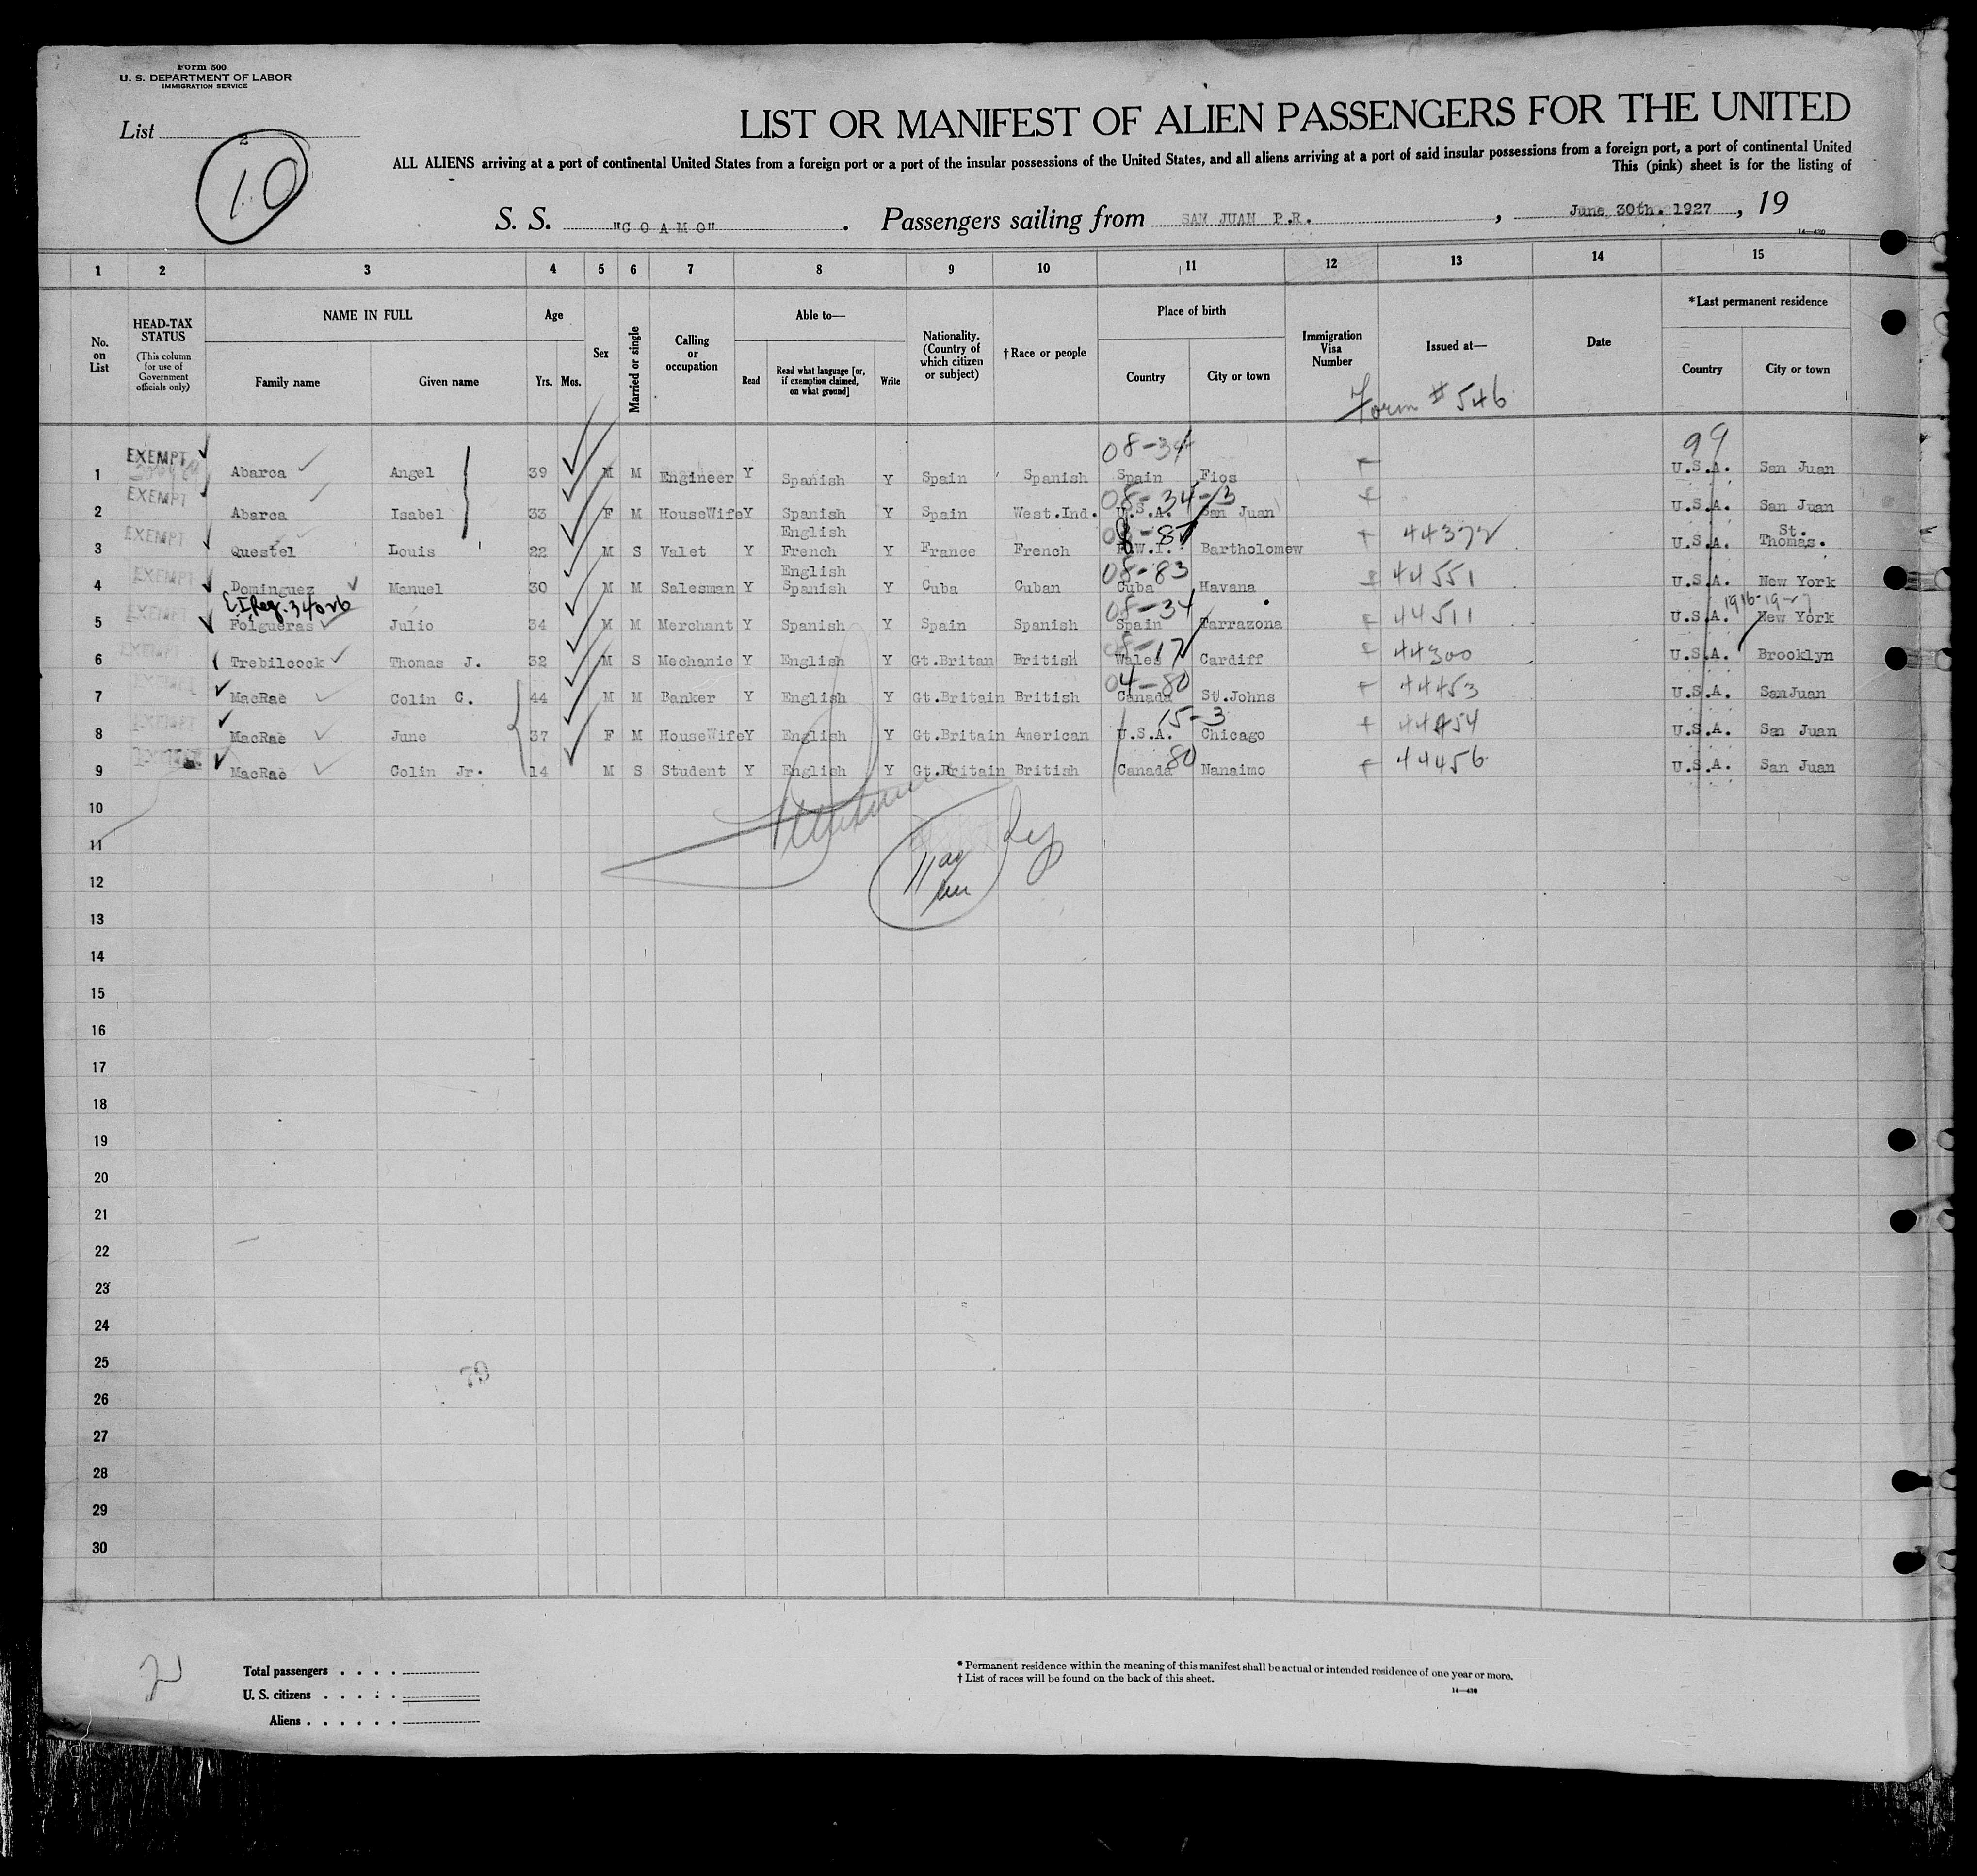 Form 500
U. S. DEPARTMENT OF LABOR
IMMIGRATION SERVICE
List 2
10
LIST OR MANIFEST OF ALIEN PASSENGERS FOR THE UNITED
ALL ALIENS arriving at a port of continental United States from a foreign port or a port of the insular possessions of the United States, and all aliens arriving at a port of said insular possessions from a foreign port, a port of continental United
This (pink) sheet is for the listing of
S. S. "COAMO" . Passengers sailing from SAN JUAN P.R. , June 30th. 1927 , 19
14—430
1 2 3 4 5 6 7 8 9 10 11 12 13 14 15
No. on List
HEAD-TAX STATUS (This column for use of Government officials only)
NAME IN FULL Family name Given name
Age Yrs. Mos.
Sex
Married or single
Calling or occupation
Able to— Read Read what language [or, if exemption claimed, on what ground] Write
Nationality. (Country of which citizen or subject)
†Race or people
Place of birth Country City or town
Immigration Visa Number
Issued at—
Date
*Last permanent residence Country City or town
Form # 546
08-34 99
1 EXEMPT Abarca Angel 39 M M Engineer Y Spanish Y Spain Spanish Spain Fios U.S.A. San Juan
08-34-3
2 EXEMPT Abarca Isabel 33 F M HouseWife Y Spanish Y Spain West.Ind. U.S.A. San Juan U.S.A. San Juan
3 EXEMPT Questel Louis 22 M S Valet Y English French Y France French Bartholomew 44372 U.S.A. St. Thomas.
08-83
4 EXEMPT Dominguez Manuel 30 M M Salesman Y English Spanish Y Cuba Cuban Cuba Havana 44551 U.S.A. New York
08-34
5 EXEMPT Folgueras Julio 34 M M Merchant Y Spanish Y Spain Spanish Spain Tarrazona 44511 U.S.A. New York
08-17
6 EXEMPT Trebilcock Thomas J. 32 M S Mechanic Y English Y Gt.Britan British Wales Cardiff 44300 U.S.A. Brooklyn
04-80
7 EXEMPT MacRae Colin C. 44 M M Banker Y English Y Gt.Britain British Canada St.Johns 44453 U.S.A. SanJuan
15-3
8 EXEMPT MacRae June 37 F M HouseWife Y English Y Gt.Britain American U.S.A. Chicago 44454 U.S.A. San Juan
80
9 EXEMPT MacRae Colin Jr. 14 M S Student Y English Y Gt.Britain British Canada Nanaimo 44456 U.S.A. San Juan
10
11
12
13
14
15
16
17
18
19
20
21
22
23
24
25
79
26
27
28
29
30
2
Total passengers . . . .
U. S. citizens . . . . .
Aliens . . . . . .
* Permanent residence within the meaning of this manifest shall be actual or intended residence of one year or more.
† List of races will be found on the back of this sheet.
14—430